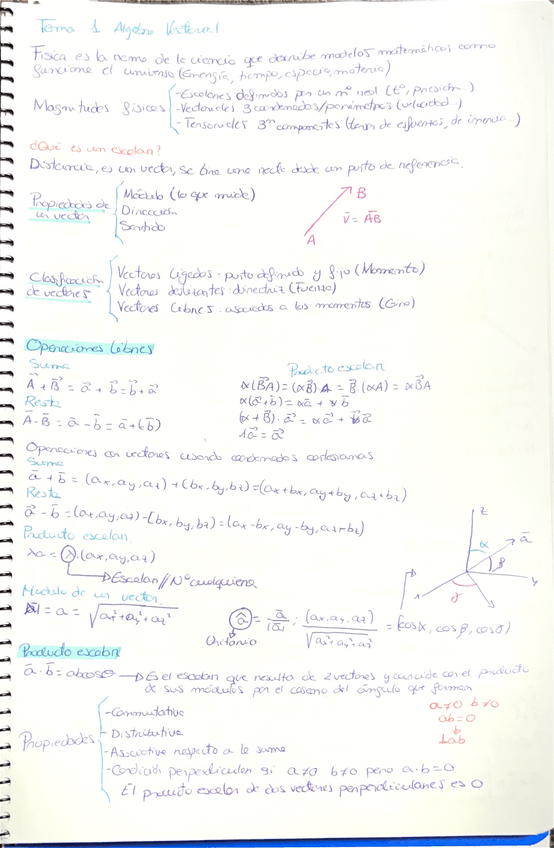 Tema 1 Algebra Vectorial
Física es la nomo de la ciencia que describe modelos matemáticos como
funciona el universo (Energía, tiempo, espacio, materia)
Magnitudes físicas
-Escalares definidos por un nº real (tº, presión...)
-Vectoriales 3 coordenadas/parámetros (velocidad...)
-Tensoriales 3ⁿ componentes (tensor de esfuerzos, de inercia...)
¿Qué es un escalar?
Distancia, es un vector, se tira una recta desde un punto de referencia.
Propiedades de un vector
Módulo (lo que mide)
Dirección
Sentido
B
v̄ = AB̄
A
Clasificación de vectores
Vectores ligados: punto definido y fijo (Momento)
Vectores deslizantes: directriz (Fuerza)
Vectores libres: asociados a los momentos (Giro)
Operaciones libres
Suma
A⃗ + B⃗ = a⃗ + b⃗ = b⃗ + a⃗
Resta
Ā - B̄ = ā - b̄ = ā + (-b̄)
Producto escalar
α(B⃗A) = (αB⃗) A = B⃗.(αA) = αB⃗A
α(a⃗+b̄) = αā + αb̄
(α+β).a⃗ = αa⃗ + βa⃗
1a⃗ = a⃗
Operaciones con vectores usando coordenadas cartesianas
Suma
ā + b̄ = (ax, ay, az) + (bx, by, bz) = (ax+bx, ay+by, az+bz)
Resta
a⃗ - b̄ = (ax, ay, az) - (bx, by, bz) = (ax-bx, ay-by, az-bz)
Producto escalar
λa = λ.(ax, ay, az)
Escalar // Nº cualquiera
z
ā
α
β
y
γ
Modulo de un vector
|ā| = a = √ax²+ay²+az²
â = ā/|ā| = (ax, ay, az)/√ax²+ay²+az² = (cosα, cosβ, cosγ)
Unitario
Producto escalar
ā.b̄ = abcosθ → Es el escalar que resulta de 2 vectores y coincide con el producto
de sus módulos por el coseno del ángulo que forman
a≠0 b≠0
ab=0
⊥ab
Propiedades
-Conmutativa
-Distributiva
-Asociativa respecto a la suma
-Condición perpendicular si a≠0 b≠0 pero a.b=0
El producto escalar de dos vectores perpendiculares es 0